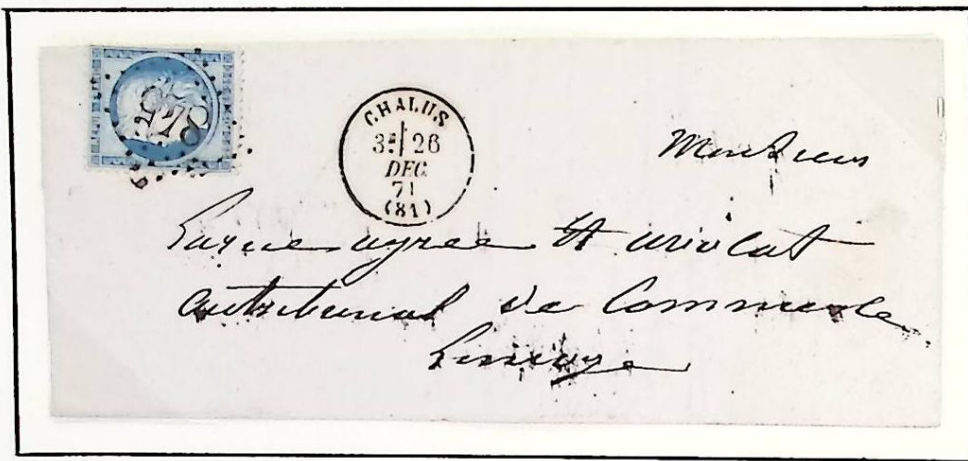 978
CHALUS
3E 26
DEC
71
(81)
Monsieur
agree et avocat
au tribunal de Commerce
Limoges